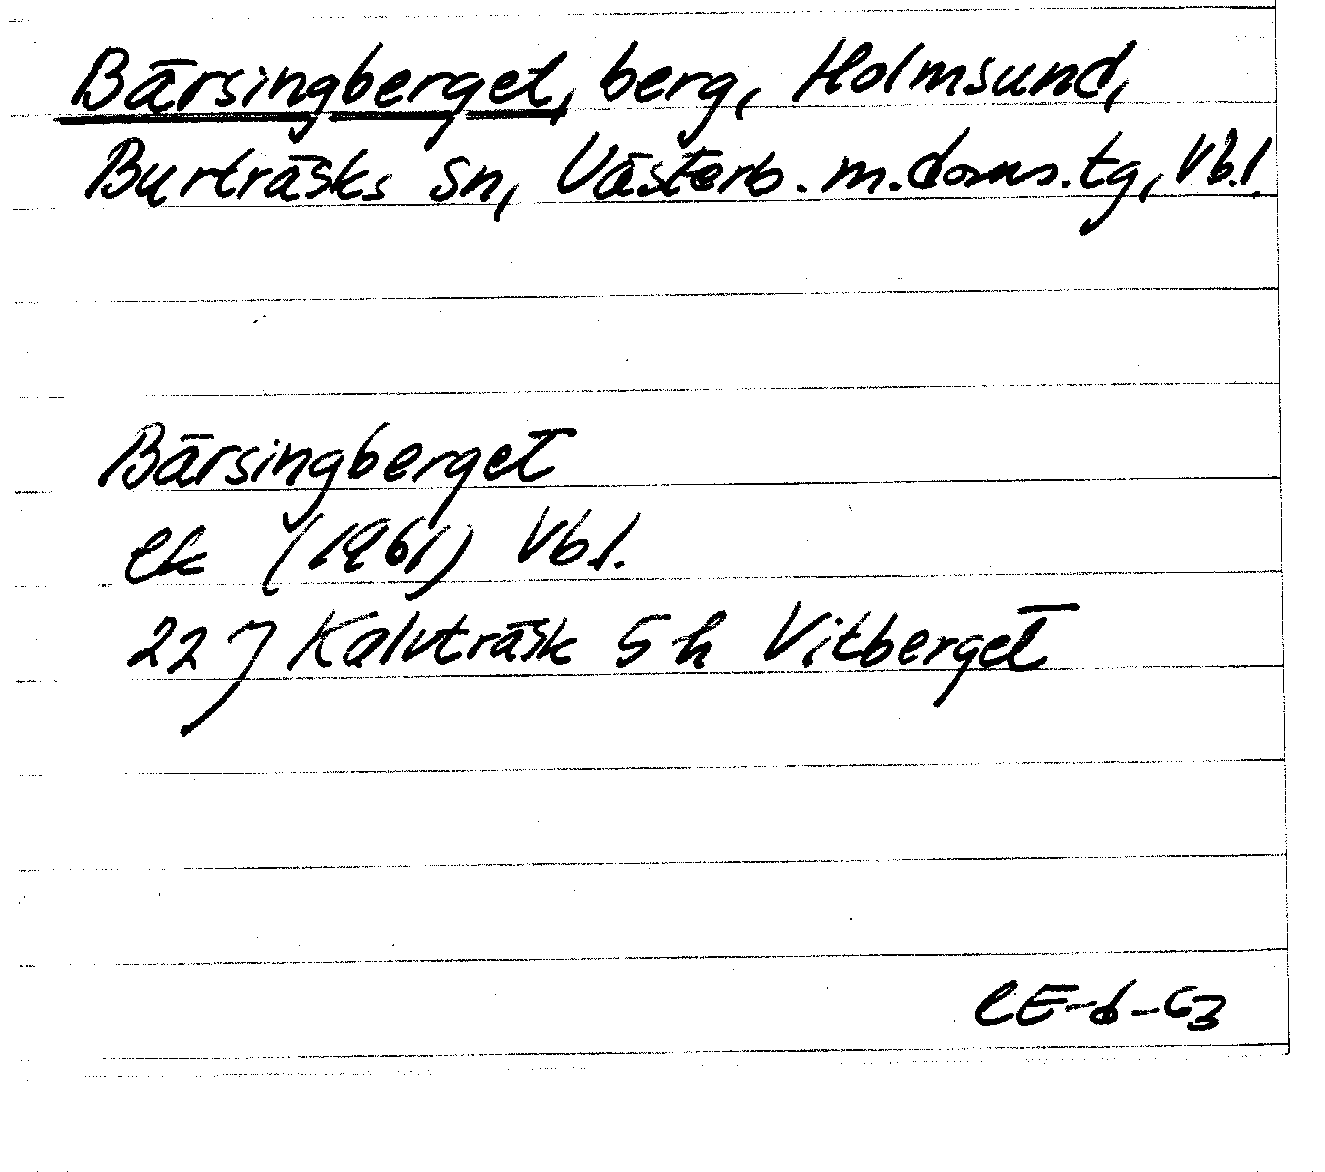 Bärsingberget, berg, Holmsund,
Burträsks sn, Västerb. m. doms. tg, Vb.l.
Bärsingberget
ek (1961) Vb.l.
22 J Kalvträsk 5 h Vitberget
CE-d-63